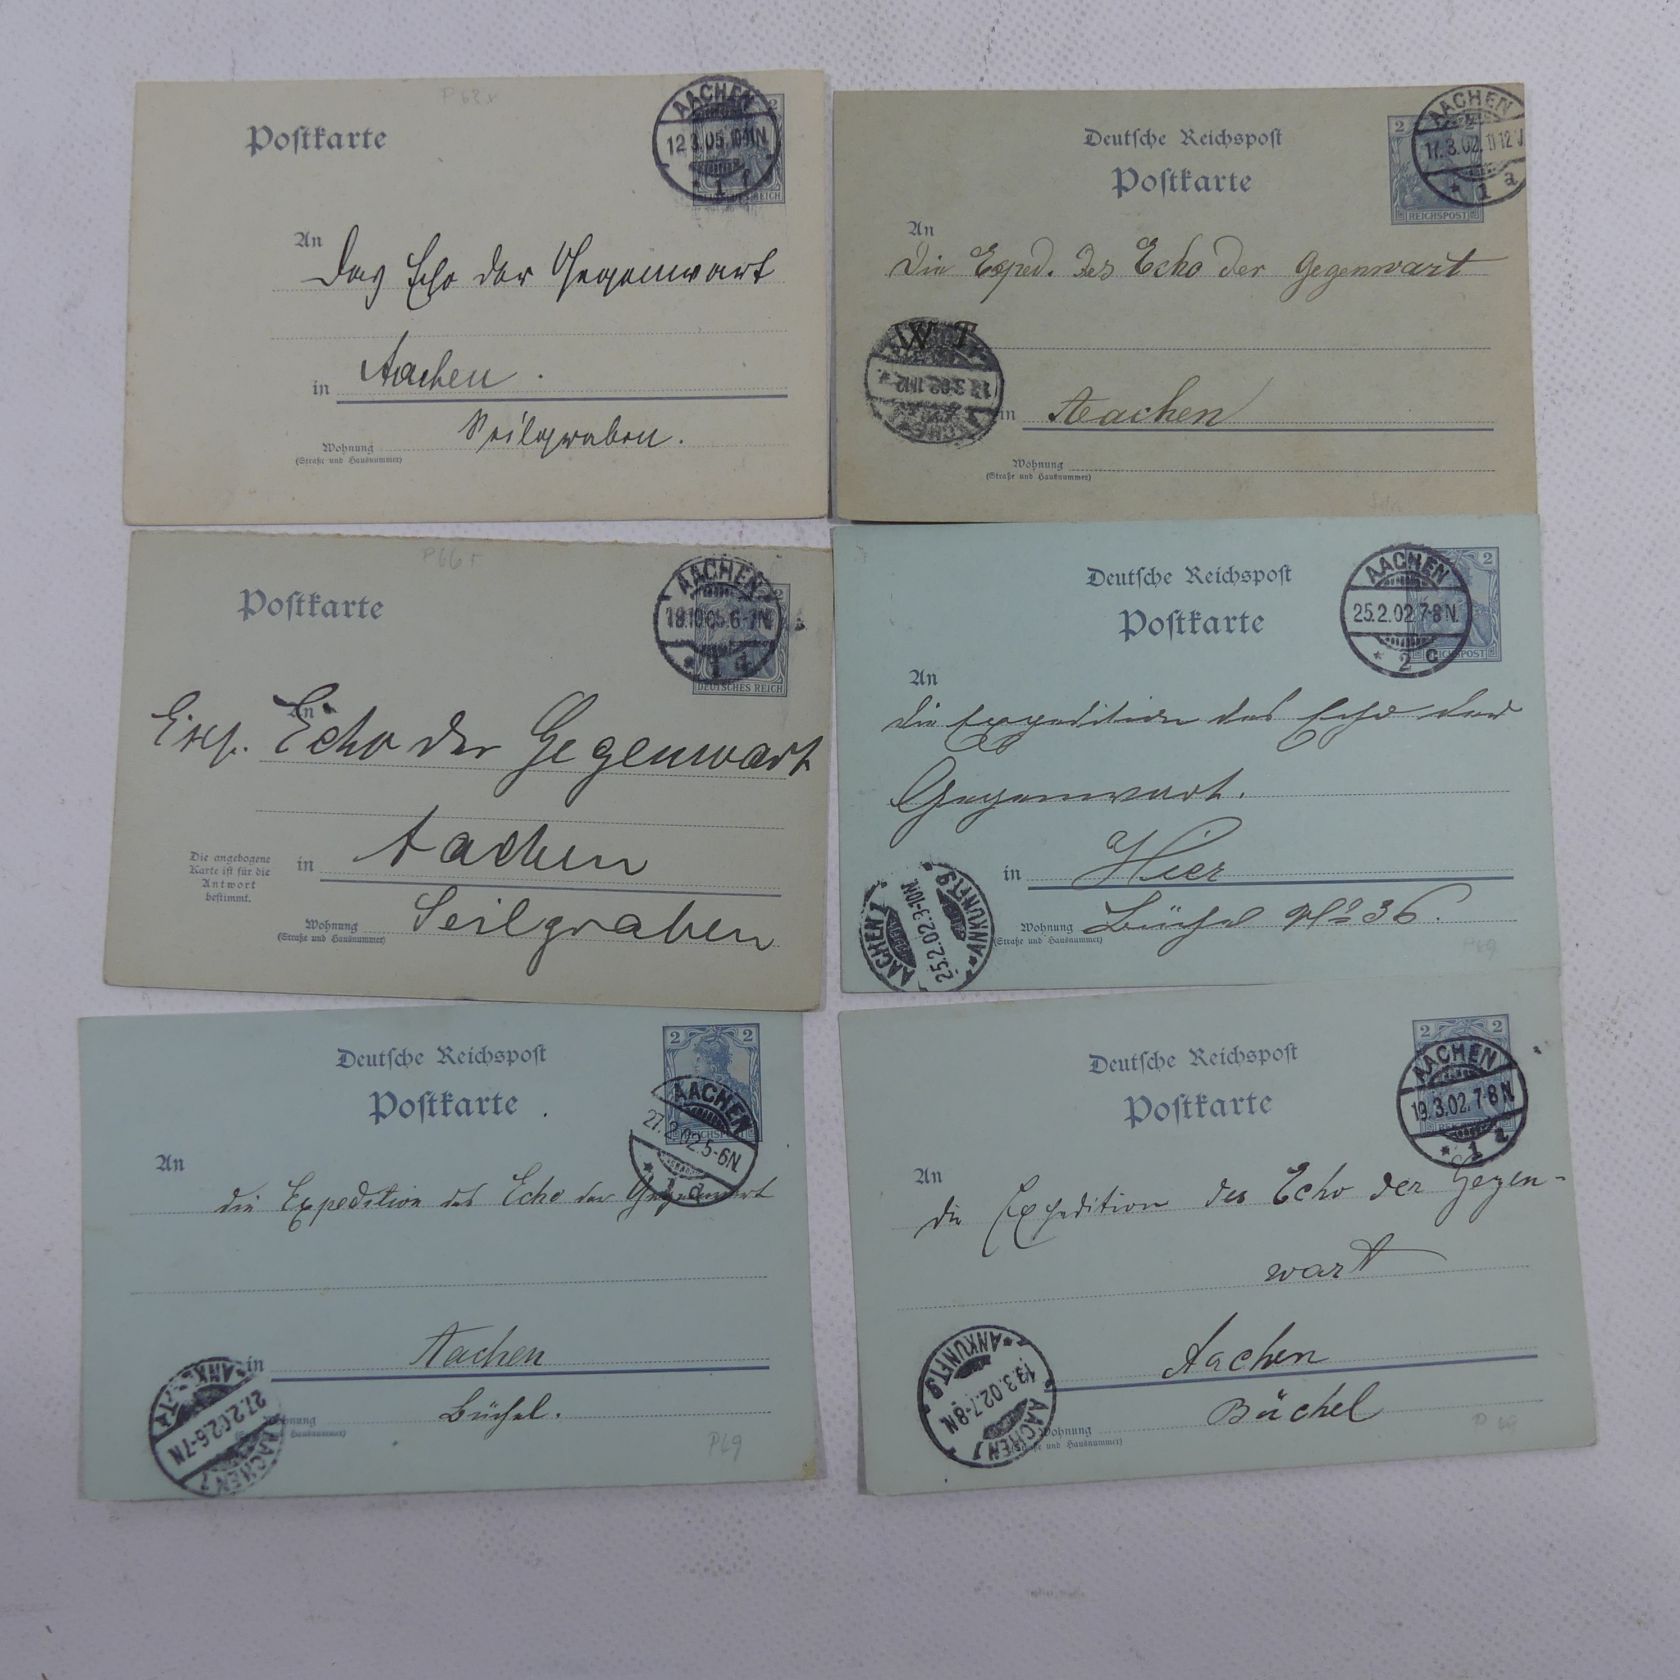 P63x
Postkarte
AACHEN
12 3.05.10-11N
* 1 f
2
REICH
An
Das Echo der Gegenwart
in Aachen.
Seilgraben.
Wohnung
(Straße und Hausnummer)
Deutsche Reichspost
Postkarte
2
AACHEN
17.3.02.11-12
* 1 a
REICHSPOST
An
Die Exped. des Echo der Gegenwart
W T
in Aachen
Wohnung
(Straße und Hausnummer)
P66r
Postkarte
AACHEN
19.10 05.6-7N
* 1 a
DEUTSCHES REICH
An
Exp. Echo der Gegenwart
Die angebogene
Karte ist für die
Antwort
bestimmt.
in Aachen
Seilgraben
Wohnung
(Straße und Hausnummer)
Deutsche Reichspost
Postkarte
2
AACHEN
25.2.02.7-8N.
* 2 c
REICHSPOST
An
die Expedition des Echo der
Gegenwart.
in Hier
Büchel No 36.
Wohnung
(Straße und Hausnummer)
AACHEN 1
25.2.02.
*ANKUNFT.9*
P69
Deutsche Reichspost
Postkarte
2 2
AACHEN
27.2.02.5-6N.
* 1 a
REICHSPOST
An
die Expedition des Echo der Gegenwart
in Aachen
Büchel.
Wohnung
Hausnummer)
27.2.02.6-7N
AACHEN
P69
Deutsche Reichspost
Postkarte
2 2
AACHEN
19.3.02.7-8N
* 1 a
An
die Expedition des Echo der Gegen-
wart
in Aachen
Büchel
Wohnung
(Straße und Hausnummer)
*ANKUNFT.9*
19.3.02.7-8N
AACHEN 1
P69